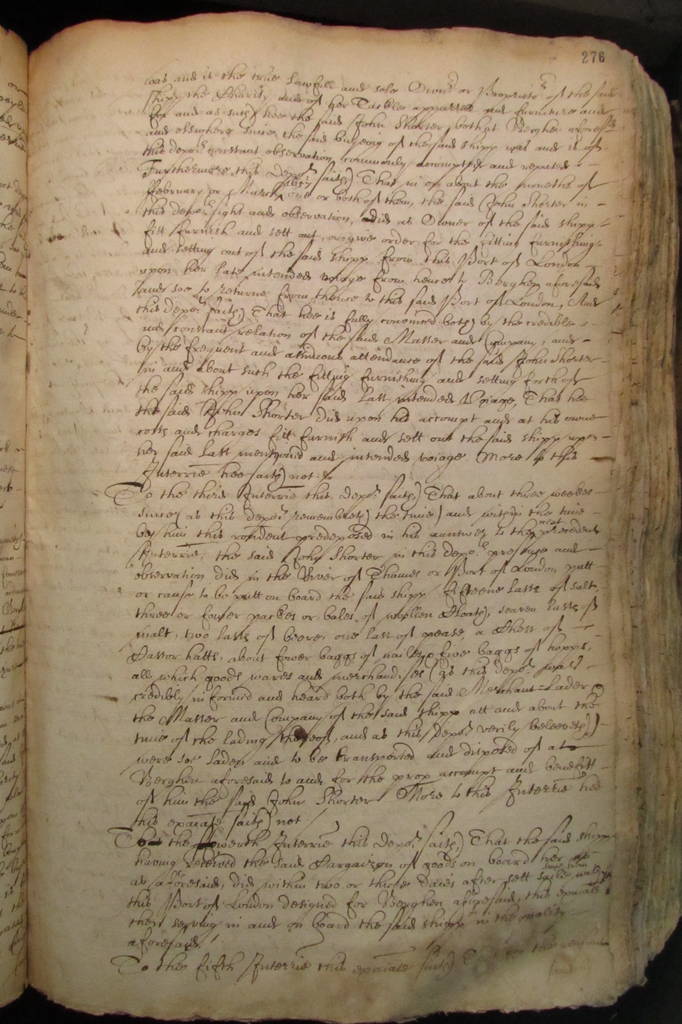 276
was and is the true lawfull and sole Owner or Proprietor of the said
shipp the Charity and of her Tackle apparrell and furniture and
for and as such hee the said John Shorter, both at Berghen aforesd
and elsewhere since the said buying of the said shipp was and is of
this depots constant observation, commonly accompted and reputed
Furthermore this depot saith, That in or about the moneths of
February or March last one or both of them, the said John Shorter in
this depots sight and observation, did as Owner of the said shipp
fitt furnish and sett out, or give order for the fitting furnishing
and setting out of the said shipp from this Port of London
upon her late intended voiage from hence to Berghen aforesaid
and soe to returne from thence to this said Port of London, And
this depot saith, That hee is fully convinced both by the credible
and constant relation of the said Master and Company, and
by the frequent and attendance of the said John Shorter
in and about such the fitting furnishing and setting forth of
the said shipp upon her said last intended Voiage, That hee
the said John Shorter did upon his accompt and at his owne
costs and charges fitt furnish and sett out the said shipp upon
her said last mentioned and intended voiage More to this
Interrie hee saith not
To the third Interrie this depot saith, That about three weekes
since, as this depot remembreth the time, and within the time
by him this rendent predeposed in his answer to the next precedent
Interrie, the said John Shorter in this depots presence and
observation did in the River of Thames or Port of London putt
or cause to be putt on board the said shipp fifteene lasts of salt,
three or fower packes or bales of woollen Cloath, seaven lasts of
malt, two lasts of beere, one last of pease, a Chest of
Castor hatts, about fower baggs of five baggs of hopps,
all which goods wares and merchandises (as this depot was
credibly informed and heard both by the said Merchant-Lader
the Master and Company of the said shipp att and about the
time of the lading thereof, and as this depot verily beleeveth)
were soe laden and to be transported and disposed of at
Berghen aforesaid to and for the prop accompt and benefitt
of him the said John Shorter More to this Interrie hee
this examate saith not
To the fowerth Interrie this depot saith, That the said shipp
having received the said Cargaizon of goods on board her
as aforesaid, did within two or three daies after sett saile
this Port of London designed for Berghen aforesaid, this examate
then serving in and on board the said shipp in the quality
aforesaid
To the fifth Interrie this examate saith, That